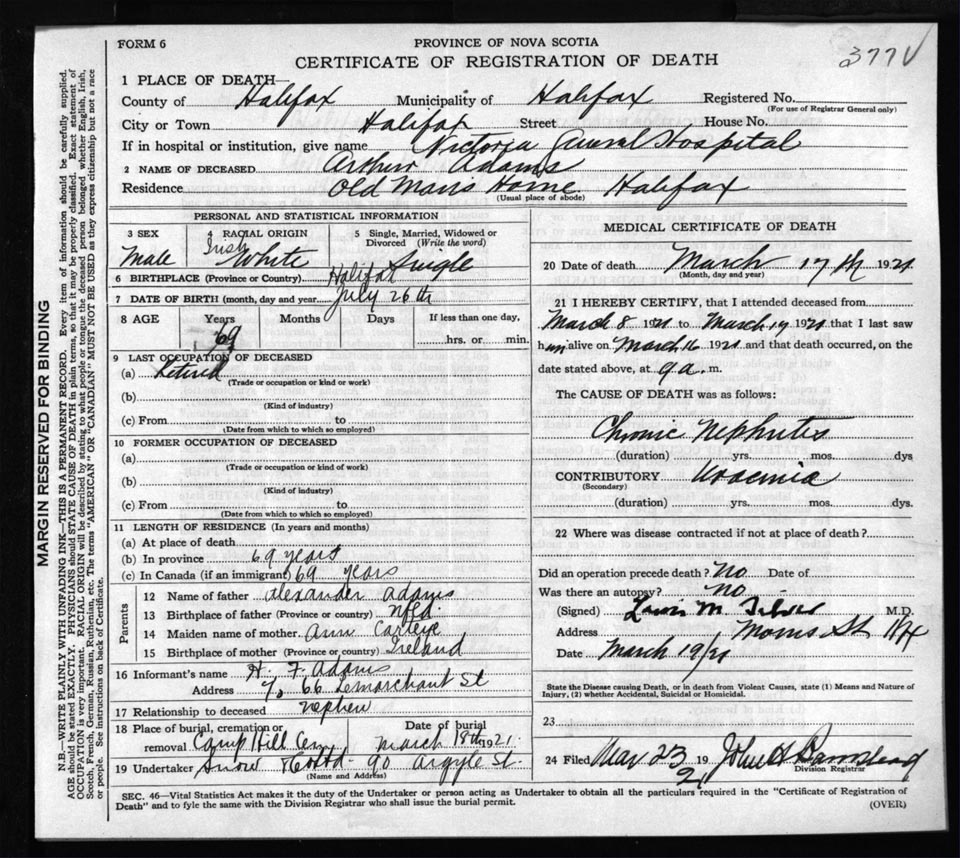 FORM 6
PROVINCE OF NOVA SCOTIA
CERTIFICATE OF REGISTRATION OF DEATH
377
1 PLACE OF DEATH—
County of Halifax Municipality of Halifax Registered No.
(For use of Registrar General only)
City or Town Halifax Street House No.
If in hospital or institution, give name Victoria General Hospital
2 NAME OF DECEASED Arthur Adams
Residence Old Mans Home Halifax
(Usual place of abode)
PERSONAL AND STATISTICAL INFORMATION
3 SEX 4 RACIAL ORIGIN 5 Single, Married, Widowed or Divorced (Write the word)
Male Irish White Single
6 BIRTHPLACE (Province or Country) Halifax
7 DATE OF BIRTH (month, day and year) July 26th
8 AGE Years Months Days If less than one day,
69 hrs. or min.
9 LAST OCCUPATION OF DECEASED
(a) Retired
(Trade or occupation or kind or work)
(b)
(Kind of industry)
(c) From to
(Date from which to which so employed)
10 FORMER OCCUPATION OF DECEASED
(a)
(Trade or occupation or kind of work)
(b)
(Kind of industry)
(c) From to
(Date from which to which so employed)
11 LENGTH OF RESIDENCE (In years and months)
(a) At place of death
(b) In province 69 years
(c) In Canada (if an immigrant) 69 years
Parents
12 Name of father Alexander Adams
13 Birthplace of father (Province or country) Nfld.
14 Maiden name of mother Ann
15 Birthplace of mother (Province or country) Ireland
16 Informant's name H. F. Adams
Address % 66 Lemarchant St
17 Relationship to deceased nephew
18 Place of burial, cremation or removal Camp Hill Cem Date of burial March 18th 1921.
19 Undertaker Snow & Co Ltd. 90 Argyle St.
(Name and Address)
MEDICAL CERTIFICATE OF DEATH
20 Date of death March 17th 1921
(Month, day and year)
21 I HEREBY CERTIFY, that I attended deceased from
March 8 1921 to March 17 1921 that I last saw
him alive on March 16 1921 and that death occurred, on the
date stated above, at 9 a. m.
The CAUSE OF DEATH was as follows:
Chronic Nephrites
(duration) yrs. mos. dys
CONTRIBUTORY Uraemia
(Secondary)
(duration) yrs. mos. dys.
22 Where was disease contracted if not at place of death?
Did an operation precede death? No Date of
Was there an autopsy? No.
(Signed) Lewis M. Silver M.D.
Address Morris St Hfx
Date March 19/21
State the Disease causing Death, or in death from Violent Causes, state (1) Means and Nature of
Injury, (2) whether Accidental, Suicidal or Homicidal.
23
24 Filed Mar 23 1921 John A Barnstead
Division Registrar
SEC. 46—Vital Statistics Act makes it the duty of the Undertaker or person acting as Undertaker to obtain all the particulars required in the "Certificate of Registration of
Death" and to fyle the same with the Division Registrar who shall issue the burial permit.
(OVER)
MARGIN RESERVED FOR BINDING
N.B.—WRITE PLAINLY WITH UNFADING INK—THIS IS A PERMANENT RECORD. Every item of information should be carefully supplied.
AGE should be stated EXACTLY. PHYSICIANS should STATE CAUSE OF DEATH in plain terms, so that it may be properly classified. Exact statement of
OCCUPATION is very important. RACIAL ORIGIN will be described by stating to what people or tongue the deceased person belonged whether English, Irish,
Scotch, French, German, Russian, Ruthenian, etc. The terms "AMERICAN" OR "CANADIAN" MUST NOT BE USED as they express citizenship but not a race
or people. See instructions on back of Certificate.